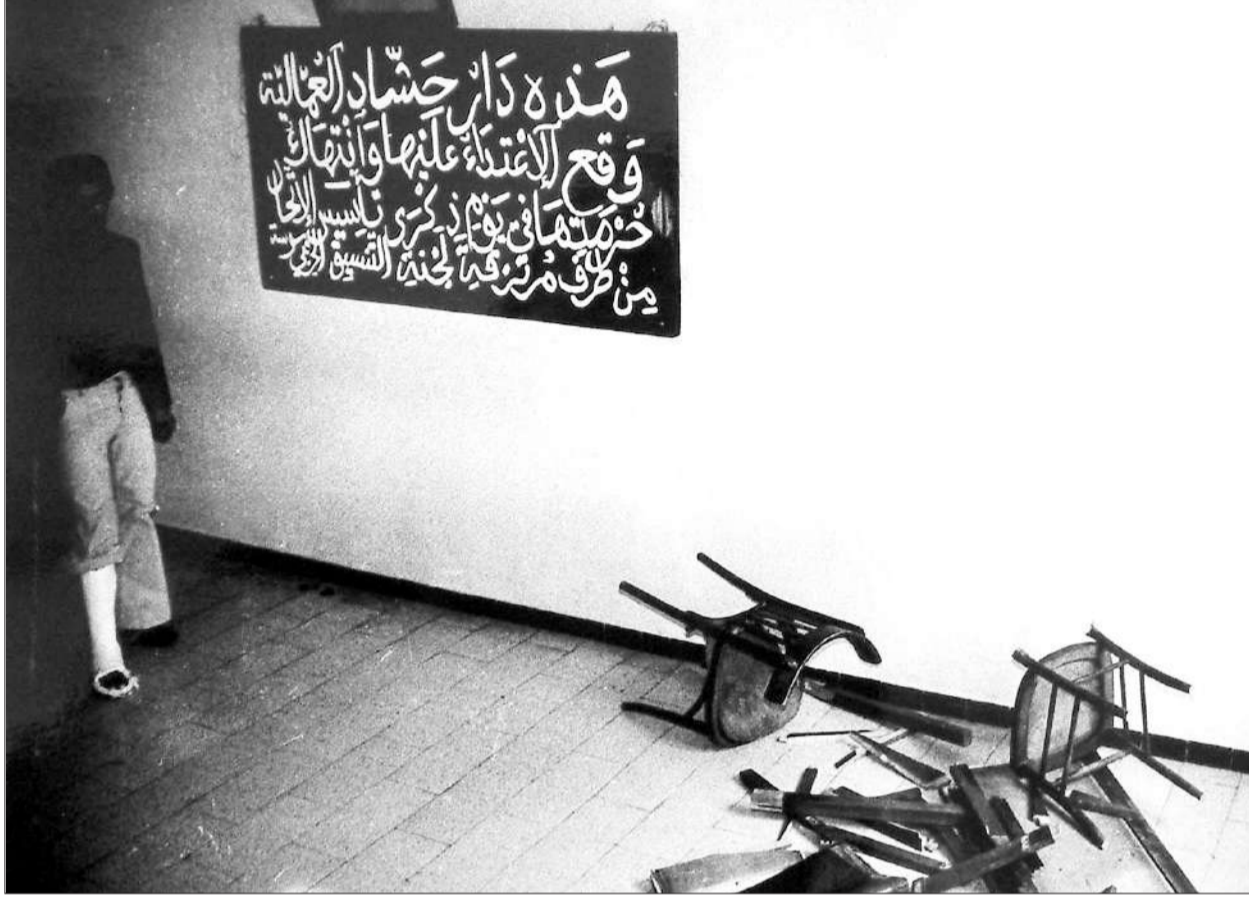 هَذِه دَارُ حَشَّاد العُمَّاليّة
وَقع الإعْتدَاءُ عَليْها وَانْتهَاكُ
حُرْمَتِهَا في يَوْمِ ذِكْرَى تَأسِيس الإتحاد
مِنْ طَرَف مُرْتزقةِ لَجْنةِ التنسِيق الحزبي بسوسة